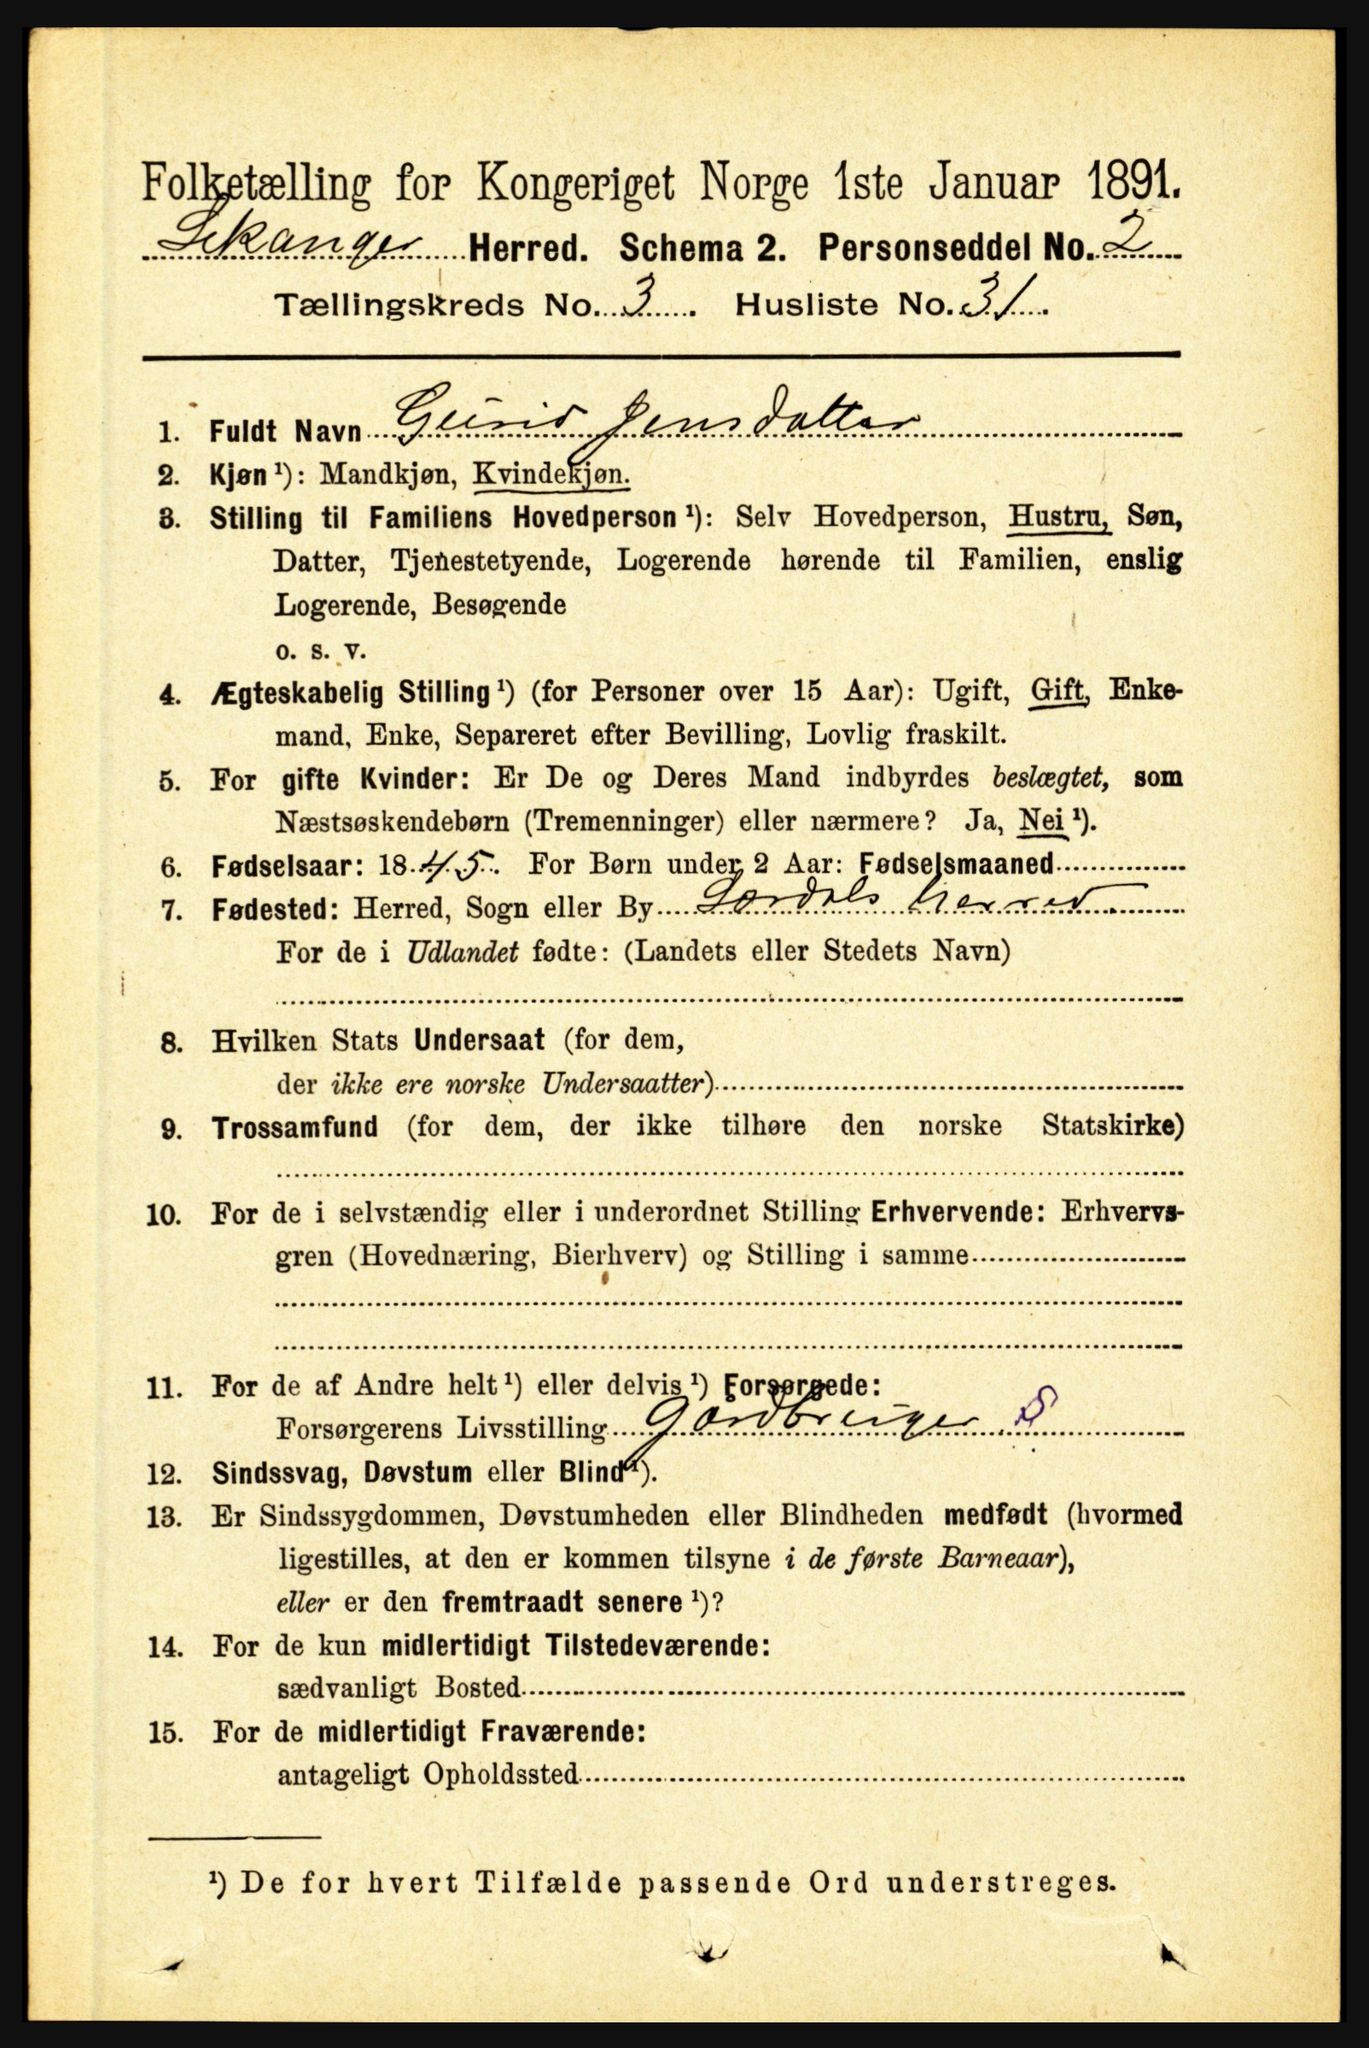 Folketælling for Kongeriget Norge 1ste Januar 1891.
Lekanger Herred. Schema 2. Personseddel No. 2
Tællingskreds No. 3. Husliste No. 31.
1. Fuldt Navn Gurid Jensdatter
2. Kjøn¹): Mandkjøn, Kvindekjøn.
3. Stilling til Familiens Hovedperson¹): Selv Hovedperson, Hustru, Søn,
Datter, Tjenestetyende, Logerende hørende til Familien, enslig
Logerende, Besøgende
o. s. v.
4. Ægteskabelig Stilling¹) (for Personer over 15 Aar): Ugift, Gift, Enke-
mand, Enke, Separeret efter Bevilling, Lovlig fraskilt.
5. For gifte Kvinder: Er De og Deres Mand indbyrdes beslægtet, som
Næstsøskendebørn (Tremenninger) eller nærmere? Ja, Nei¹).
6. Fødselsaar: 1845. For Børn under 2 Aar: Fødselsmaaned
7. Fødested: Herred, Sogn eller By Lærdals herred
For de i Udlandet fødte: (Landets eller Stedets Navn)
8. Hvilken Stats Undersaat (for dem,
der ikke ere norske Undersaatter)
9. Trossamfund (for dem, der ikke tilhøre den norske Statskirke)
10. For de i selvstændig eller i underordnet Stilling Erhvervende: Erhvervs-
gren (Hovednæring, Bierhverv) og Stilling i samme
11. For de af Andre helt¹) eller delvis¹) Forsørgede:
Forsørgerens Livsstilling Gardbruger S
12. Sindssvag, Døvstum eller Blind¹).
13. Er Sindssygdommen, Døvstumheden eller Blindheden medfødt (hvormed
ligestilles, at den er kommen tilsyne i de første Barneaar),
eller er den fremtraadt senere¹)?
14. For de kun midlertidigt Tilstedeværende:
sædvanligt Bosted
15. For de midlertidigt Fraværende:
antageligt Opholdssted
¹) De for hvert Tilfælde passende Ord understreges.